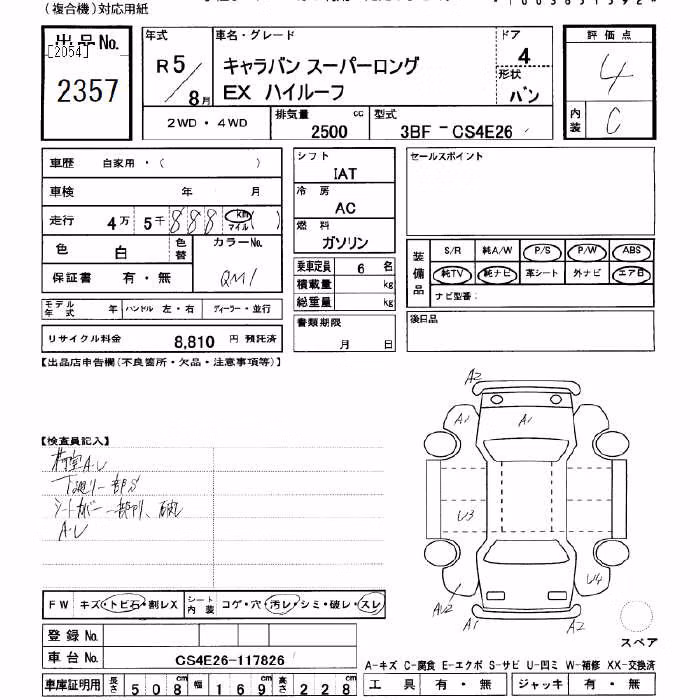 (複合機)対応用紙
出品No.
[2054]
2357
年式
R5/8月
車名・グレード
キャラバン スーパーロング
EX ハイルーフ
ドア
4
形状
バン
評価点
4
内装
C
2WD・4WD
排気量
2500 cc
型式
3BF -CS4E26
車歴 自家用・( )
車検 年 月
走行 4万 5千 888 km マイル ( )
色 白
色替
カラーNo.
QM1
保証書 有・無
モデル年式 年
ハンドル 左・右
ディーラー・並行
リサイクル料金 8,810 円 預託済
シフト
IAT
冷房
AC
燃料
ガソリン
乗車定員 6 名
積載量 kg
総重量 kg
書類期限
月 日
セールスポイント
装備品
S/R 純A/W P/S P/W ABS
純TV 純ナビ 革シート 外ナビ エアB
ナビ型番:
後日品
【出品店申告欄(不良箇所・欠品・注意事項等)】
【検査員記入】
荷室A.U
下廻り一部S
シートカバー一部切り、破れ
A.U
A2
A1
A1
U3
U4
AU2
A1
A2
スペア
FW キズ・トビ石・割レX
シート内装 コゲ・穴・汚レ・シミ・破レ・スレ
登録No.
車台No. CS4E26-117826
車庫証明用 長さ 508cm 幅 169cm 高さ 228cm
A-キズ C-腐食 E-エクボ S-サビ U-凹ミ W-補修 XX-交換済
工具 有・無 ジャッキ 有・無